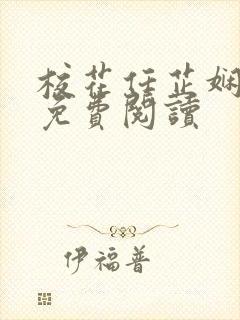 校花任芷娴
免費閱讀
伊福普